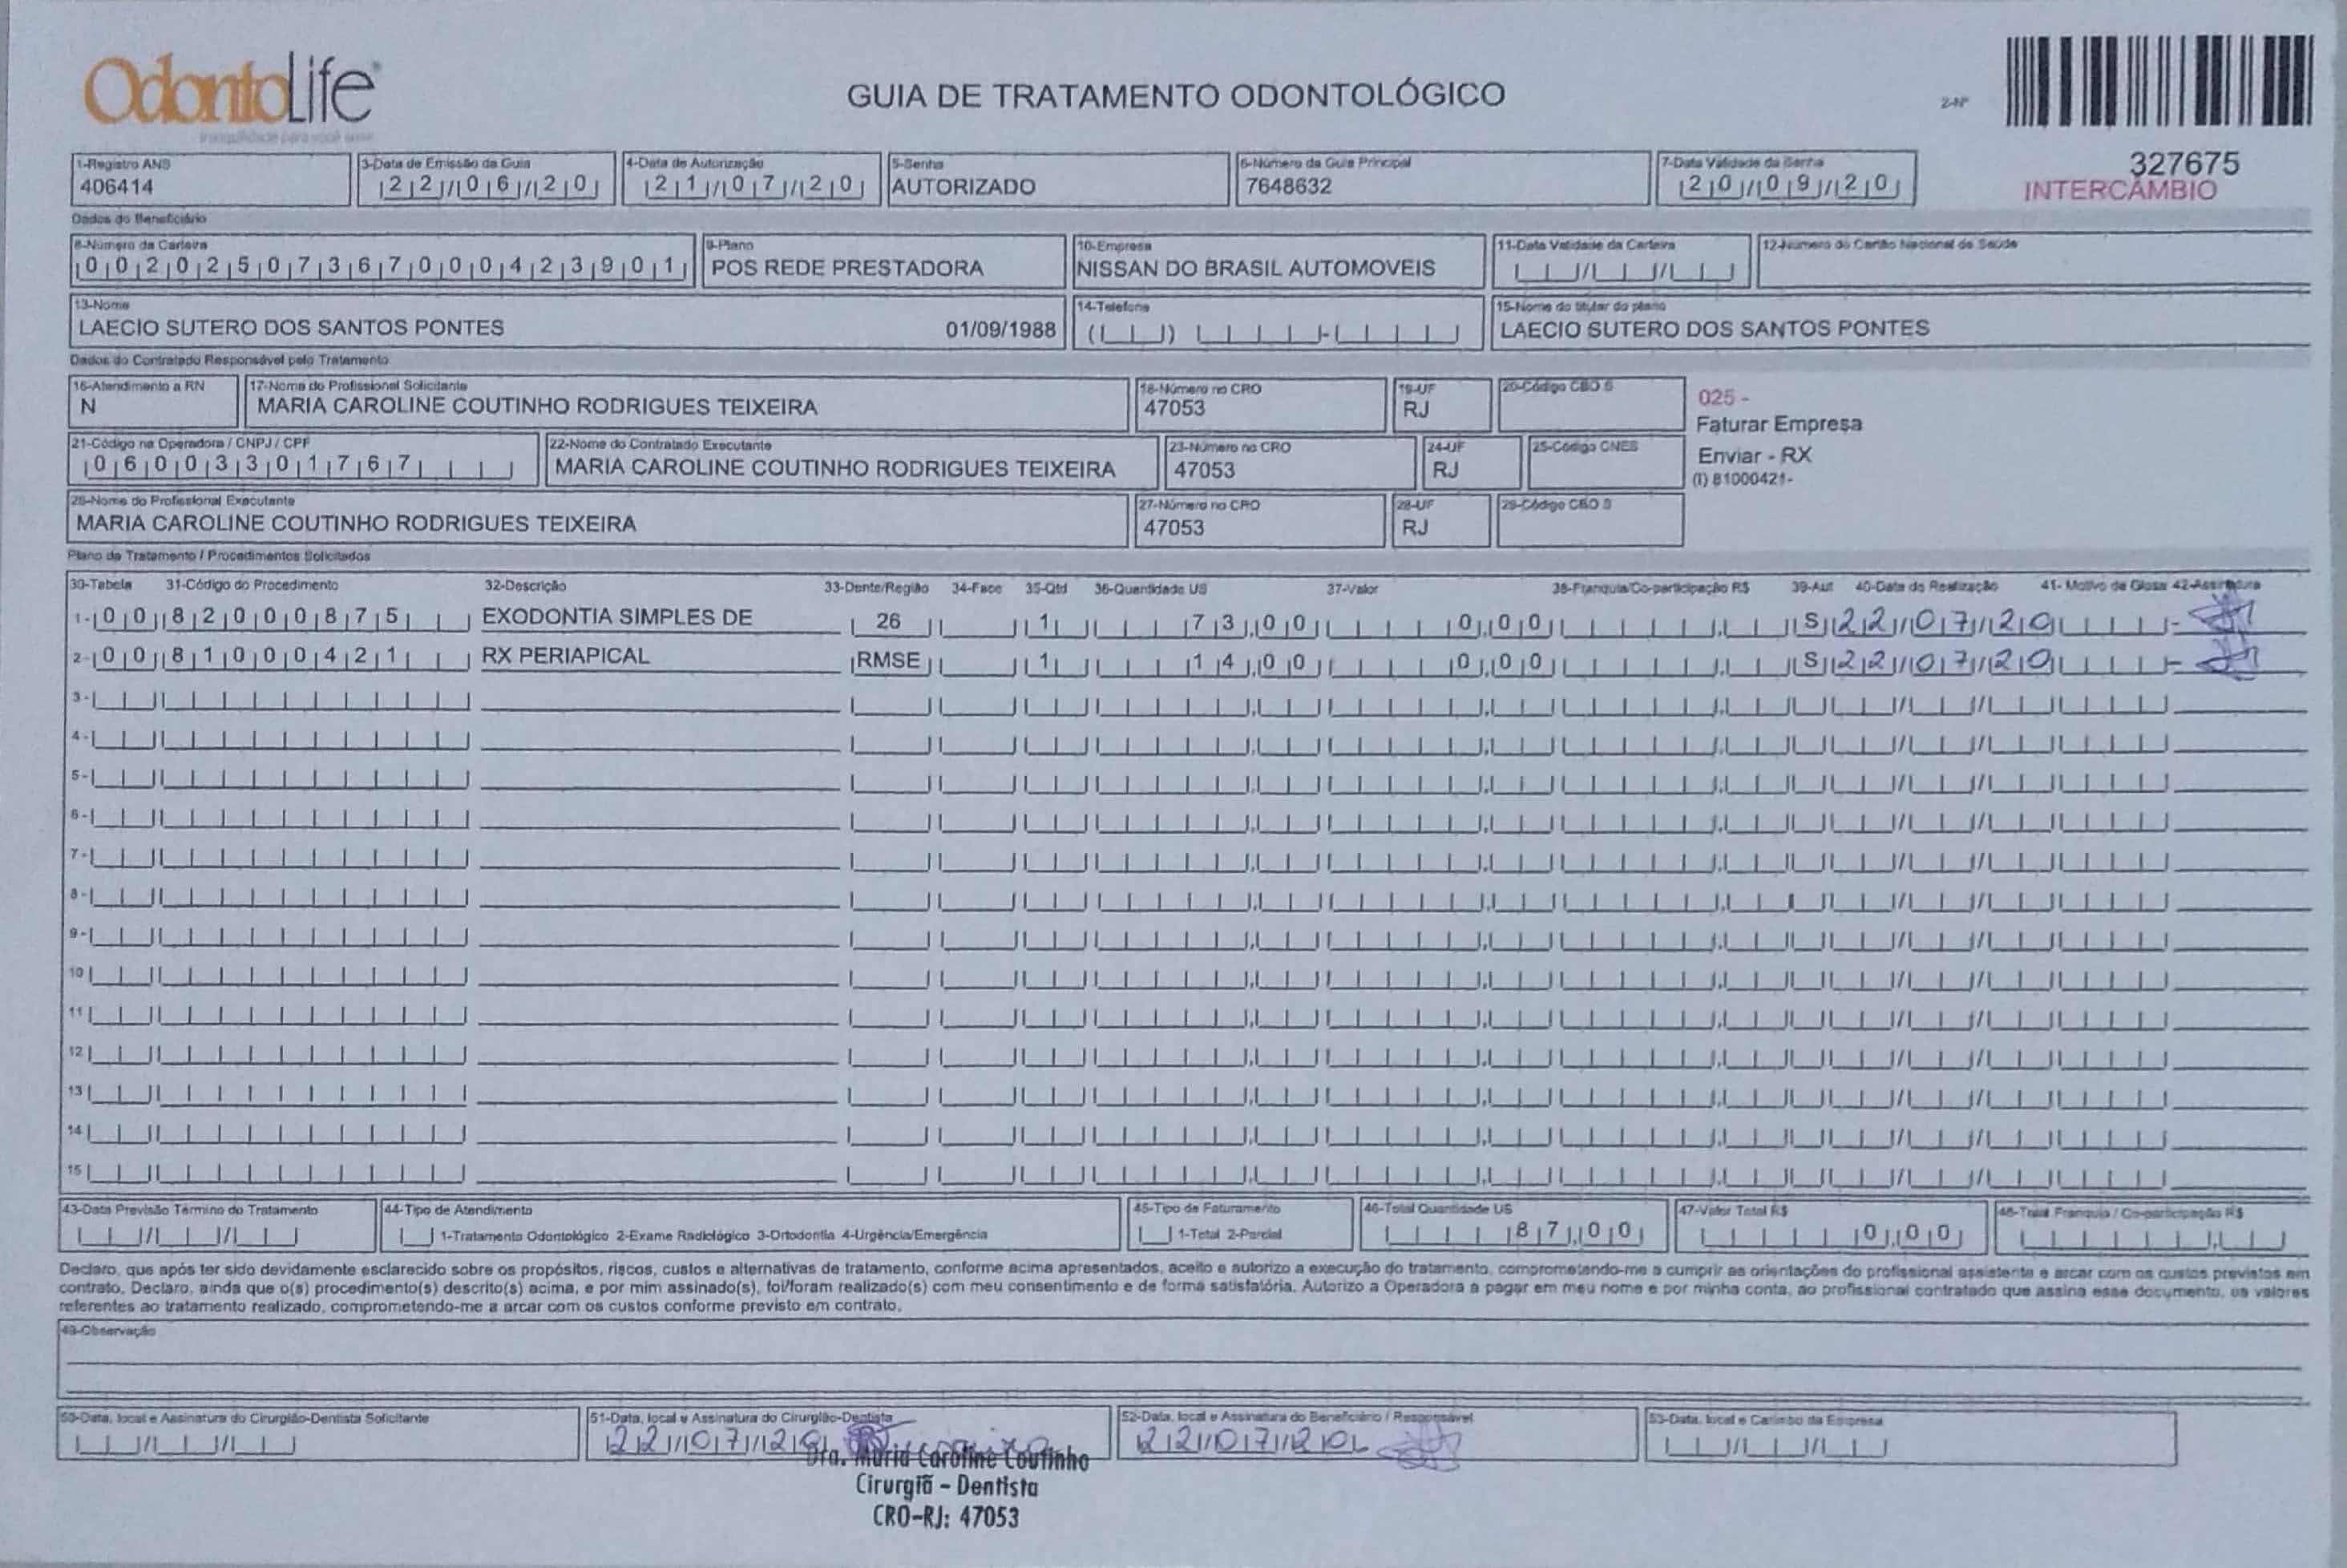 OdontoLife
GUIA DE TRATAMENTO ODONTOLÓGICO
2-Nº
327675
INTERCÂMBIO
1-Registro ANS
406414
3-Data de Emissão da Guia
22/06/20
4-Data de Autorização
21/07/20
5-Senha
AUTORIZADO
6-Número da Guia Principal
7648632
7-Data Validade da Senha
20/09/20
Dados do Beneficiário
8-Número da Carteira
00202507367000423901
9-Plano
POS REDE PRESTADORA
10-Empresa
NISSAN DO BRASIL AUTOMOVEIS
11-Data Validade da Carteira
12-Número do Cartão Nacional de Saúde
13-Nome
LAECIO SUTERO DOS SANTOS PONTES 01/09/1988
14-Telefone
15-Nome do titular do plano
LAECIO SUTERO DOS SANTOS PONTES
Dados do Contratado Responsável pelo Tratamento
16-Atendimento a RN
N
17-Nome do Profissional Solicitante
MARIA CAROLINE COUTINHO RODRIGUES TEIXEIRA
18-Número no CRO
47053
19-UF
RJ
20-Código CBO S
025 -
Faturar Empresa
Enviar - RX
(I) 81000421-
21-Código na Operadora / CNPJ / CPF
06003301767
22-Nome do Contratado Executante
MARIA CAROLINE COUTINHO RODRIGUES TEIXEIRA
23-Número no CRO
47053
24-UF
RJ
25-Código CNES
26-Nome do Profissional Executante
MARIA CAROLINE COUTINHO RODRIGUES TEIXEIRA
27-Número no CRO
47053
28-UF
RJ
29-Código CBO S
Plano de Tratamento / Procedimentos Solicitados
30-Tabela 31-Código do Procedimento 32-Descrição 33-Dente/Região 34-Face 35-Qtd 36-Quantidade US 37-Valor 38-Franquia/Co-participação R$ 39-Aut 40-Data de Realização 41- Motivo de Glosa 42-Assinatura
1- 00 82000875 EXODONTIA SIMPLES DE 26 1 73,00 0,00 S 22/07/20
2- 00 81000421 RX PERIAPICAL RMSE 1 14,00 0,00 S 22/07/20
3-
4-
5-
6-
7-
8-
9-
10
11
12
13
14
15
43-Data Previsão Término do Tratamento
44-Tipo de Atendimento
1-Tratamento Odontológico 2-Exame Radiológico 3-Ortodontia 4-Urgência/Emergência
45-Tipo de Faturamento
1-Total 2-Parcial
46-Total Quantidade US
87,00
47-Valor Total R$
0,00
48-Total Franquia / Co-participação R$
Declaro, que após ter sido devidamente esclarecido sobre os propósitos, riscos, custos e alternativas de tratamento, conforme acima apresentados, aceito e autorizo a execução do tratamento, comprometendo-me a cumprir as orientações do profissional assistente e arcar com os custos previstos em
contrato. Declaro, ainda que o(s) procedimento(s) descrito(s) acima, e por mim assinado(s), foi/foram realizado(s) com meu consentimento e de forma satisfatória. Autorizo a Operadora a pagar em meu nome e por minha conta, ao profissional contratado que assina esse documento, os valores
referentes ao tratamento realizado, comprometendo-me a arcar com os custos conforme previsto em contrato.
49-Observação
50-Data, local e Assinatura do Cirurgião-Dentista Solicitante
51-Data, local e Assinatura do Cirurgião-Dentista
22/07/20
52-Data, local e Assinatura do Beneficiário / Responsável
22/07/20
53-Data, local e Carimbo da Empresa
Dra. Maria Caroline Coutinho
Cirurgiã - Dentista
CRO-RJ: 47053